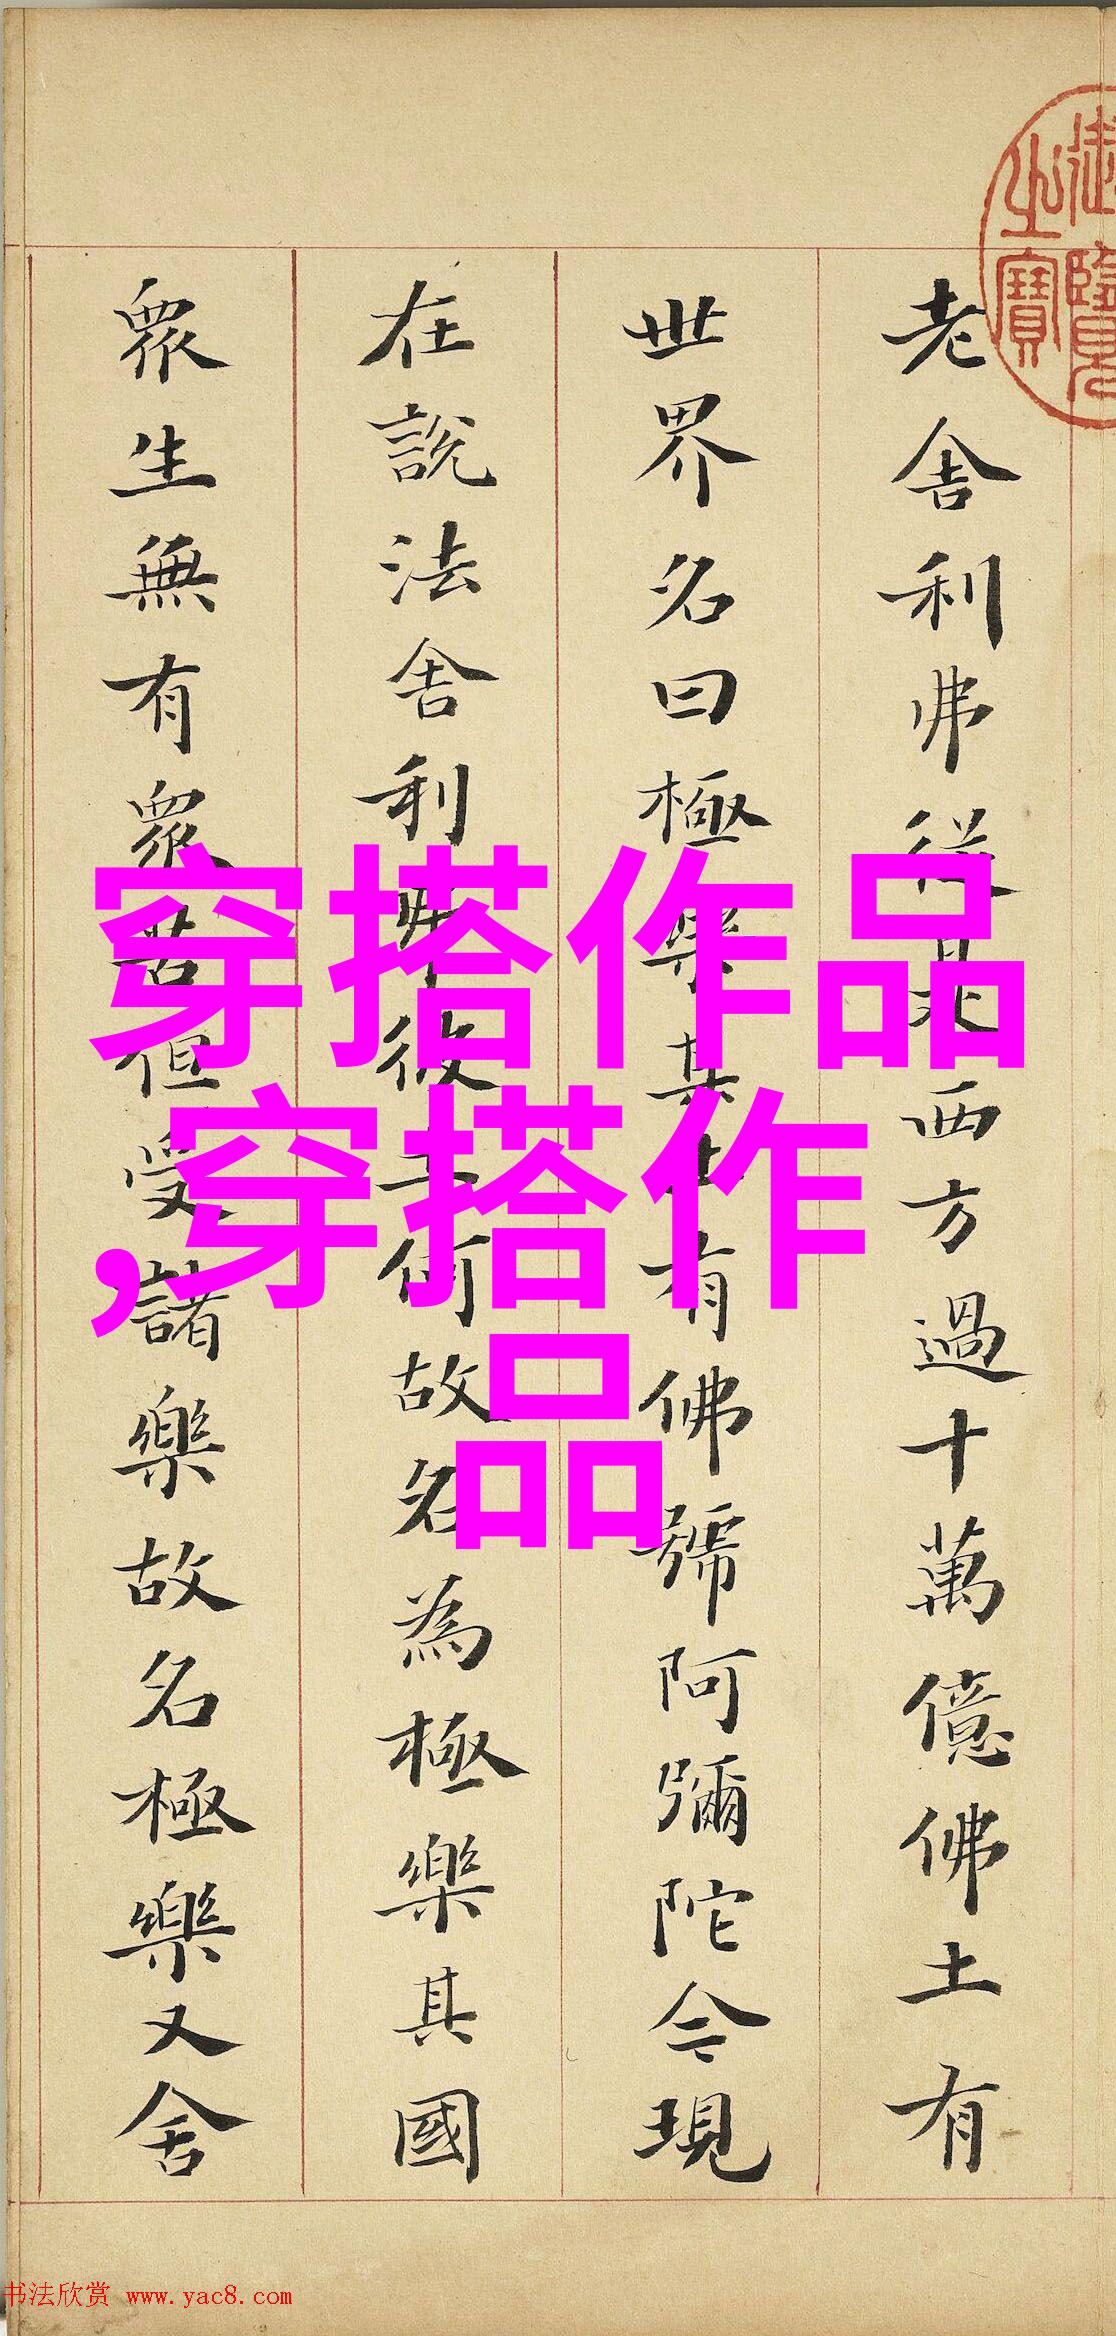 御覽
之寶
老舍利弗從是西方過十萬億佛土有
世界名曰極樂其土有佛號阿彌陀今現
在說法舍利弗彼土何故名為極樂其國
眾生無有眾苦但受諸樂故名極樂又舍
穿搭作品
,穿搭作
品
书法欣赏 www.yac8.com